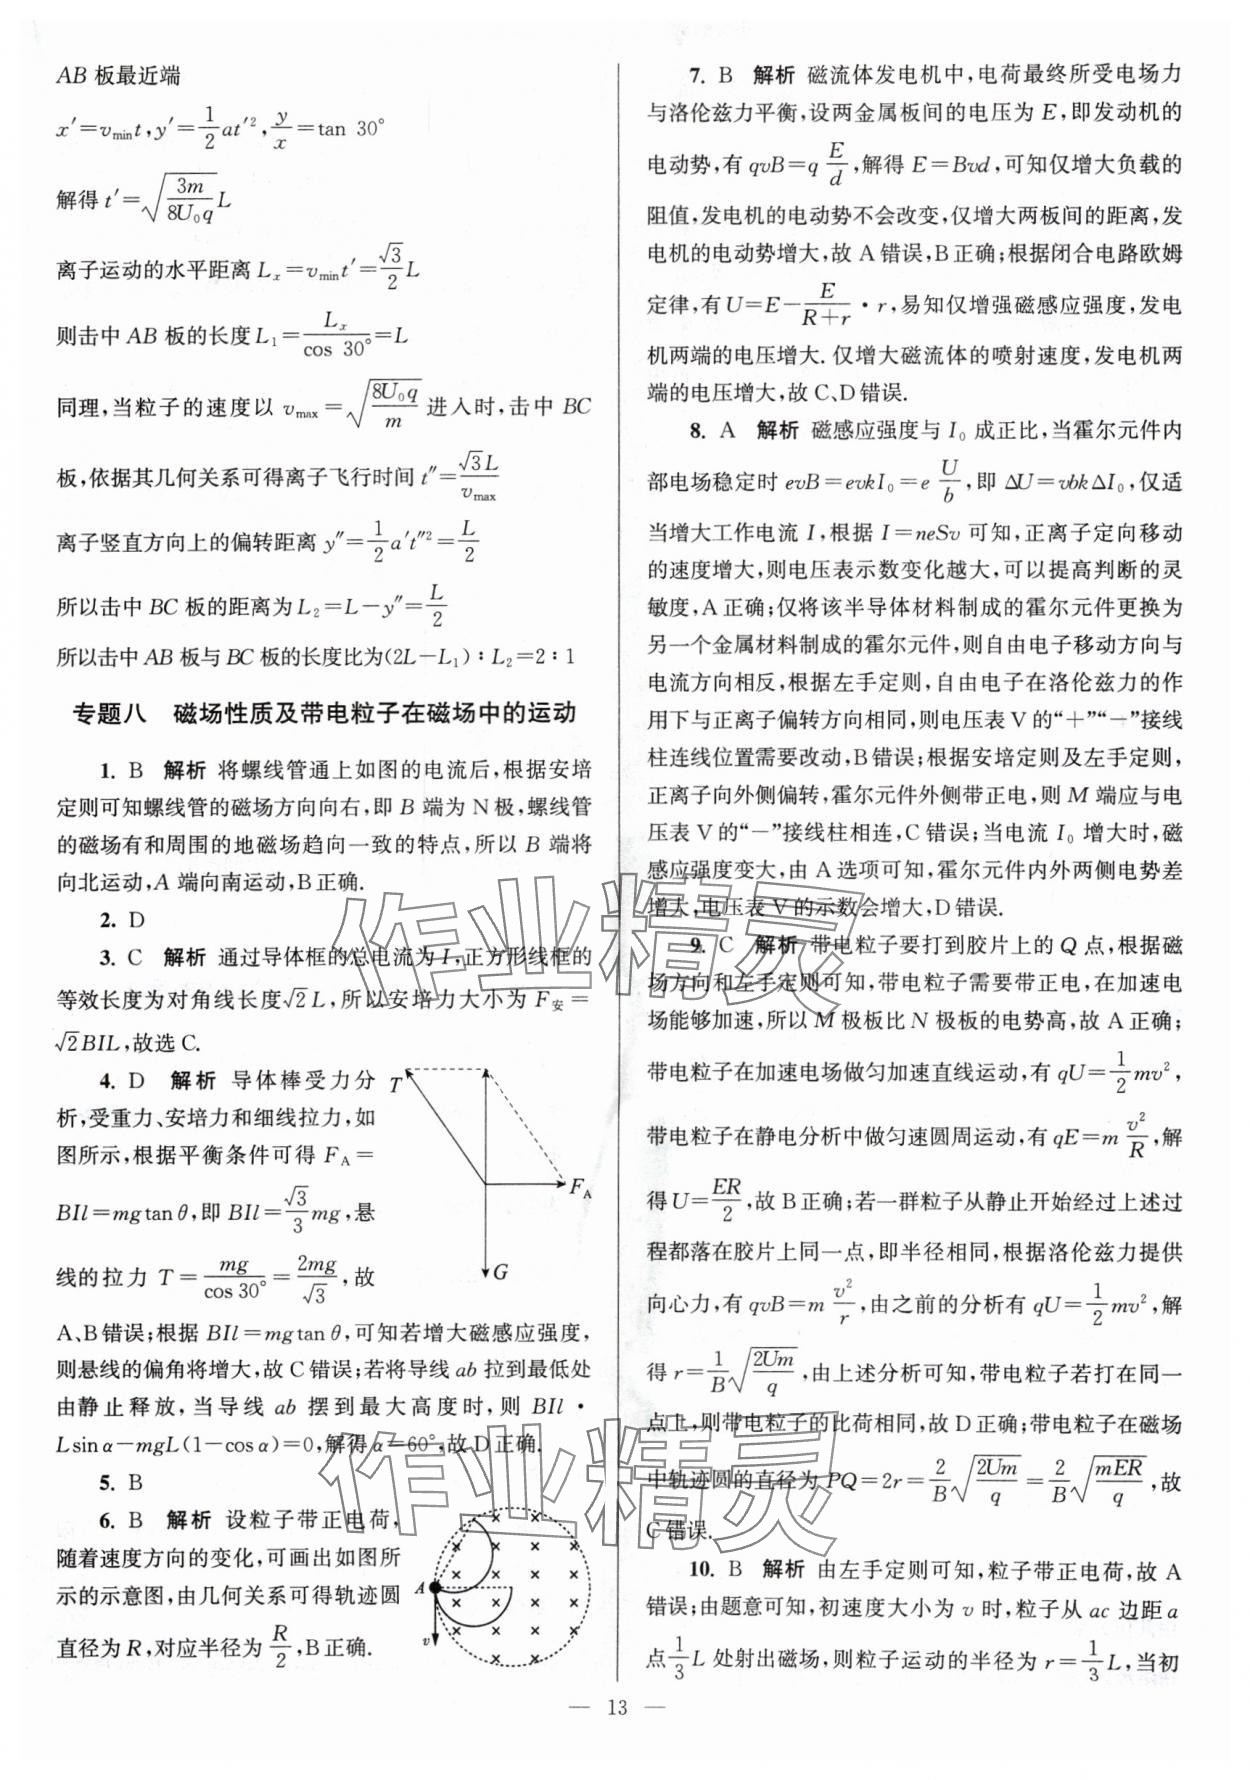 AB 板最近端
x′=v_min t,y′=1/2 at′²,y/x=tan 30°
解得 t′=√(3m/8U₀q) L
离子运动的水平距离 Lₓ=v_min t′=√3/2 L
则击中 AB 板的长度 L₁=Lₓ/cos 30°=L
同理,当粒子的速度以 v_max=√(8U₀q/m) 进入时,击中 BC
板,依据其几何关系可得离子飞行时间 t″=√3L/v_max
离子竖直方向上的偏转距离 y″=1/2 a′t″²=L/2
所以击中 BC 板的距离为 L₂=L−y″=L/2
所以击中 AB 板与 BC 板的长度比为(2L−L₁)∶L₂=2∶1
专题八 磁场性质及带电粒子在磁场中的运动
1. B 解析 将螺线管通上如图的电流后,根据安培
定则可知螺线管的磁场方向向右,即 B 端为 N 极,螺线管
的磁场有和周围的地磁场趋向一致的特点,所以 B 端将
向北运动,A 端向南运动,B 正确.
2. D
3. C 解析 通过导体框的总电流为 I,正方形线框的
等效长度为对角线长度√2 L,所以安培力大小为 F安=
√2 BIL,故选 C.
4. D 解析 导体棒受力分
析,受重力、安培力和细线拉力,如
图所示,根据平衡条件可得 F_A=
BIl=mg tan θ,即 BIl=√3/3 mg,悬
线的拉力 T=mg/cos 30°=2mg/√3,故
A、B 错误;根据 BIl=mg tan θ,可知若增大磁感应强度,
则悬线的偏角将增大,故 C 错误;若将导线 ab 拉到最低处
由静止释放,当导线 ab 摆到最大高度时,则 BIl·
L sin α−mgL(1−cos α)=0,解得 α=60°,故 D 正确.
T
F_A
G
5. B
6. B 解析 设粒子带正电荷,
随着速度方向的变化,可画出如图所
示的示意图,由几何关系可得轨迹圆
直径为 R,对应半径为 R/2,B 正确.
A
v
7. B 解析 磁流体发电机中,电荷最终所受电场力
与洛伦兹力平衡,设两金属板间的电压为 E,即发动机的
电动势,有 qvB=q E/d,解得 E=Bvd,可知仅增大负载的
阻值,发电机的电动势不会改变,仅增大两板间的距离,发
电机的电动势增大,故 A 错误,B 正确;根据闭合电路欧姆
定律,有 U=E−E/(R+r)·r,易知仅增强磁感应强度,发电
机两端的电压增大. 仅增大磁流体的喷射速度,发电机两
端的电压增大,故 C、D 错误.
8. A 解析 磁感应强度与 I₀ 成正比,当霍尔元件内
部电场稳定时 evB=evkI₀=e U/b,即 ΔU=vbkΔI₀,仅适
当增大工作电流 I,根据 I=neSv 可知,正离子定向移动
的速度增大,则电压表示数变化越大,可以提高判断的灵
敏度,A 正确;仅将该半导体材料制成的霍尔元件更换为
另一个金属材料制成的霍尔元件,则自由电子移动方向与
电流方向相反,根据左手定则,自由电子在洛伦兹力的作
用下与正离子偏转方向相同,则电压表 V 的“+”“−”接线
柱连线位置需要改动,B 错误;根据安培定则及左手定则,
正离子向外侧偏转,霍尔元件外侧带正电,则 M 端应与电
压表 V 的“−”接线柱相连,C 错误;当电流 I₀ 增大时,磁
感应强度变大,由 A 选项可知,霍尔元件内外两侧电势差
增大,电压表 V 的示数会增大,D 错误.
9. C 解析 带电粒子要打到胶片上的 Q 点,根据磁
场方向和左手定则可知,带电粒子需要带正电,在加速电
场能够加速,所以 M 极板比 N 极板的电势高,故 A 正确;
带电粒子在加速电场做匀加速直线运动,有 qU=1/2 mv²,
带电粒子在静电分析中做匀速圆周运动,有 qE=m v²/R,解
得 U=ER/2,故 B 正确;若一群粒子从静止开始经过上述过
程都落在胶片上同一点,即半径相同,根据洛伦兹力提供
向心力,有 qvB=m v²/r,由之前的分析有 qU=1/2 mv²,解
得 r=1/B √(2Um/q),由上述分析可知,带电粒子若打在同一
点上,则带电粒子的比荷相同,故 D 正确;带电粒子在磁场
中轨迹圆的直径为 PQ=2r=2/B √(2Um/q)=2/B √(mER/q),故
C 错误.
10. B 解析 由左手定则可知,粒子带正电荷,故 A
错误;由题意可知,初速度大小为 v 时,粒子从 ac 边距 a
点 1/3 L 处射出磁场,则粒子运动的半径为 r=1/3 L,当初
— 13 —
作业精灵
作业精灵